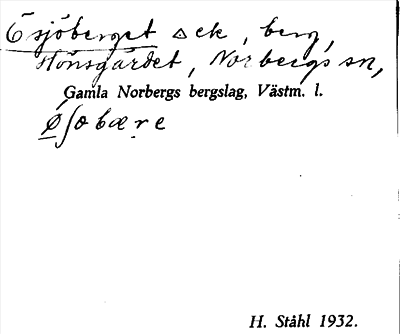 Ösjöberget ▵ ek, berg,
Hönsgärdet, Norbergs sn,
Gamla Norbergs bergslag, Västm. l.
øʃobære
H. Ståhl 1932.